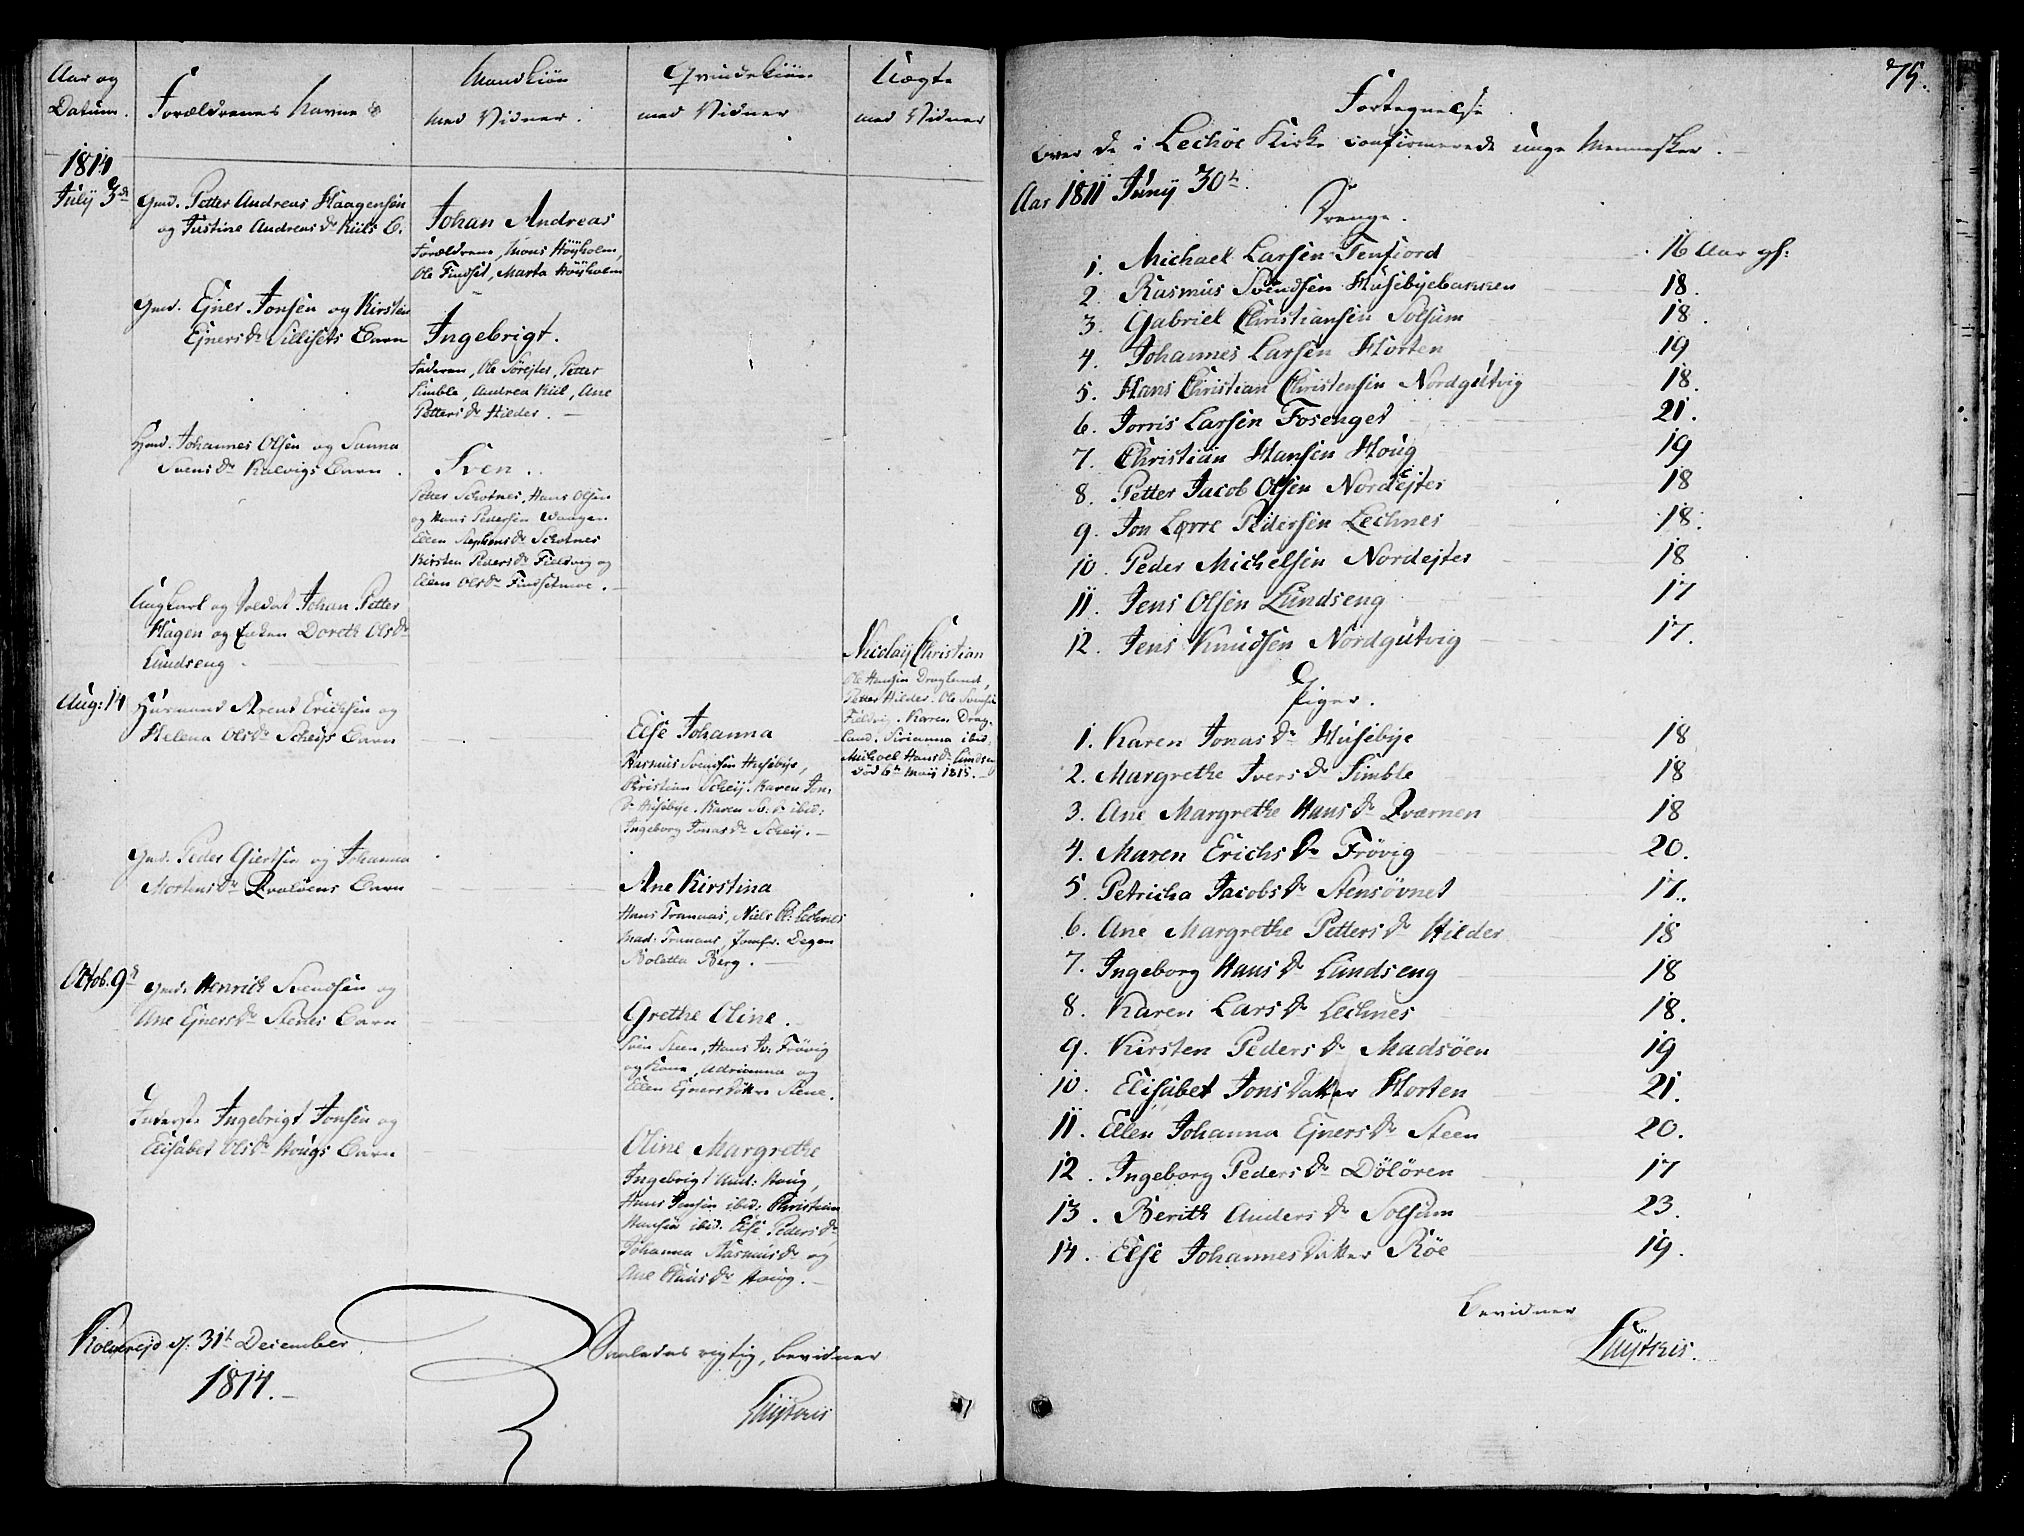 Aar og
Datum.
Forældrenes Navne &
Mandkiøn
med Vidner.
Qvindekiøn
med Vidner
Uægte
med Vidner
1814
July 3de
Gmd. Petter Andreas Haagensen
og Justine Andreas Dr Kiils B.
Johan Andreas
Forældrene, Mons Höÿholm,
Ole Findset, Marta Höÿholm
Gmd. Ejner Jonsen og Kirsten
Ejners Dr Sillisets Barn
Ingebrigt.
Faderen, Ole Sørejter, Petter
Simble, Andrea Kiil, Ane
Petters Dr Hilder.
Hmd. Johannes Olsen og Sanna
Svens Dr Kalvigs Barn.
Sven.
Petter Schotnes, Hans Olsen
og Hans Pedersen Waagen
Ellen Stephens Dr Schotnes
Kirsten Peders Dr Fieldvig og
Ellen Ols Dr Findsetmoe.
Ungkarl og Soldat Johan Petter
Hagen og Enken Doreth Ols Dr
Lundseng
Nicolaÿ Christian
Ole Hansen Dragland,
Petter Hilder. Ole Svensen
Fieldvig. Karen Drag-
land. Sirianna ibid:
Michael Hans Dr Lundsen
död 6te Maÿ 1815.
Aug: 14
Husmand Arent Erichsen og
Helena Ols Dr Scheÿs Barn
Else Johanna
Rasmus Svendsen Husebÿe,
Christian Scheÿ. Karen Jon.
Dr Husebÿe. Karen Sv. D ibid:
Ingeborg Jonas Dr Scheÿ.
Gmd. Peder Giertsen og Johanna
Mortens Dr Qvalöens Barn
Ane Kirstina
Hans Tranaas, Niels Lechnes
Mad. Tranaas, Jomfr. Degen
Noletta Berg.
Octob. 9de
Gmd. Henrich Svendsen og
Ane Ejners Dr Stenes Barn
Grethe Oline.
Sven Steen, Hans Frövig
og Kone, Adrianna og
Ellen Ejners Döttre Stene.
Inderst Ingebrigt Jonsen og
Elisabet Ols Dr Hougs Barn
Oline Margrethe
Ingebrigt And: Houg,
Hans Jensen ibid: Christian
Hansen ibid. Else Peders Dr
Johanna Rasmus Dr og
Ane Claus Dr Houg.
Kolverejd d: 31te December
1814.
Saaledes rigtig, bevidner
Luÿtkis
75.
Fortegnelse
over de i Lechöe Kirke confirmerede unge Mennesker.
Aar 1811 Junÿ 30te.
Drenge.
1. Michael Larsen Tenfiord 16 Aar gl:
2. Rasmus Svendsen Husebÿebacken 18.
3. Gabriel Christiansen Solsum 18.
4. Johannes Larsen Horten 19
5. Hans Christian Christensen Nordgutvig 18.
6. Jorris Larsen Fosenget 21.
7. Christian Hansen Houg 19
8. Petter Jacob Olsen Nordejter 18
9. Jon Lorre Pedersen Lechnes 18.
10. Peder Michelsen Nordejter 18
11. Jens Olsen Lundseng 17
12. Jens Knudsen Nordgutvig 17.
Piger.
1. Karen Jonas Dr Husebÿe 18
2. Margrethe Ivers Dr Simble 18
3. Ane Margrethe Hans Dr Qværnen 18
4. Maren Erichs Dr Frövig 20.
5. Petricha Jacobs Dr Stensövnet 17.
6. Ane Margrethe Petters Dr Hilder 18
7. Ingeborg Hans Dr Lundseng 18
8. Karen Lars Dr Lechnes 18.
9. Kirsten Peders Dr Madsöen 19
10. Elisabet Jonsdatter Horten 21.
11. Ellen Johanna Ejners Dr Steen 20.
12. Ingeborg Peders Dr Dölören 17
13. Berith Anders Dr Solsum 23.
14. Else Johannesdatter Röe 19.
bevidner
Luÿtkis.